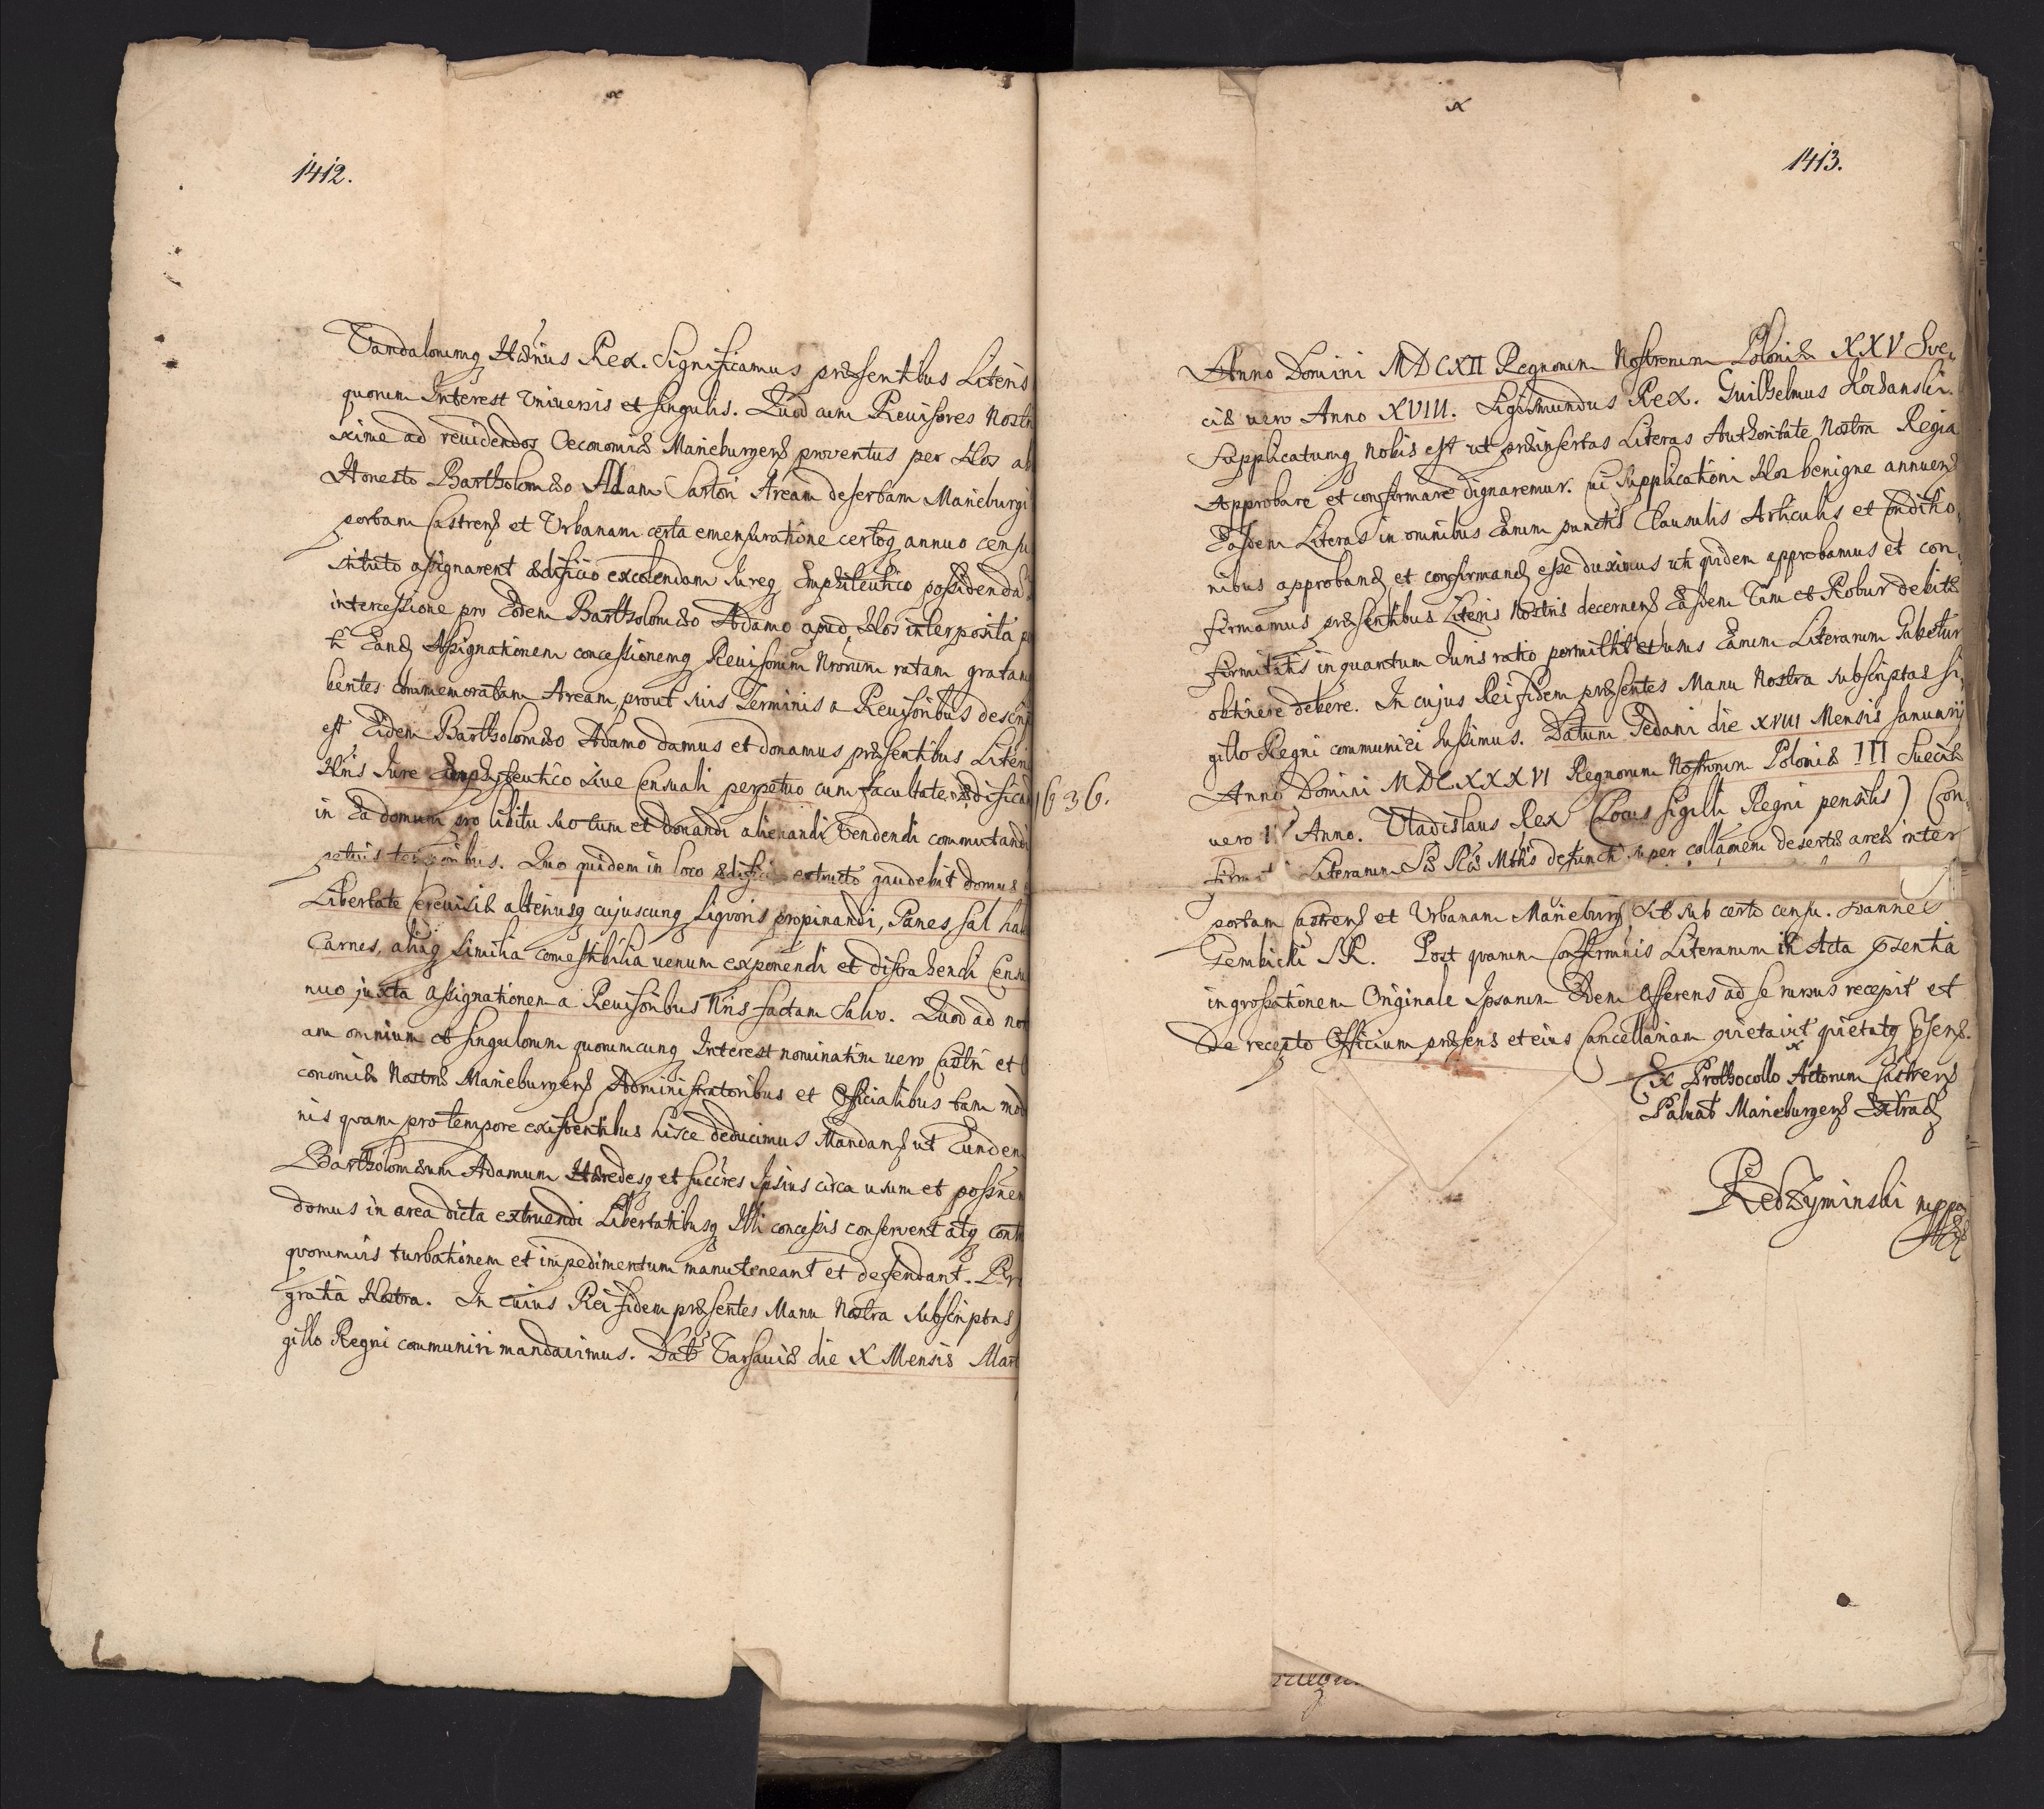 1412.
Vandalorumq Hærius Rex. Significamus præsentibus Literis
quorum Interest Universis et singulis. Quod cum Reuisores Nostri
xime ad reuidendos Oeconomiæ Marieburgens proventus per Nos ab
Honesto Bartholomæo Adam Sartori Aream desertam Marieburgi
portam Castrens et Urbanam certa emensuratione certoq annuo censu
stituto assignarent ædificio excolendam Jureq Emphiteutico possidenda
intercessione pro Eodem Bartholomæo Adamo apud Nos interposita
Eand Assignationem concessionemq Reuisorum Nrorum ratam gratam
bentes commemoratam Aream prout suis Terminis a Reuisoribus descrip
est Eidem Bartholomæo Adamo damus et donamus præsentibus Literis
Nris Jure Emphiteutico siue Censuali perpetuo cum facultate ædifican
in Ea domum pro libitu suo tum et donandi alienandi vendendi commutandi
petuis temporibus. Quo quidem in loco ædificio extructo gaudebit domus
Libertate Cereuisiæ alteriusq cujuscunq liquoris propinandi, Panes, Sal hal
Carnes, aliaq similia comestibilia uenum exponendi et distrahendi Censu
nuo juxta assignationem a Reuisoribus Nris factam salvo. Quod ad not
am omnium et singulorum quorumcunq Interest nominatim uero Castri et
conomiæ Nostræ Marieburgens Administratoribus et Officialibus tam mod
nis quam pro tempore existentibus hisce deducimus Mandans ut Eundem
Bartholomæum Adamum Hæredesq et succres Ipsius circa usum et possnem
domus in area dicta extruendi Libertatibusq Illi concessis conservent atq contra
quorumuis turbationem et impedimentum manuteneant et defendant. Pro
gratia Nostra. In cuius Rei fidem præsentes Manu Nostra subscriptas
gillo Regni communiri mandavimus. Dat Varsaviæ die X Mensis Mar
1413.
Anno Domini MDCXII Regnorum Nostrorum Poloniæ XXV Sue
ciæ uero Anno XVIII. Sigismundus Rex. Guilhelmus
Supplicatumq nobis est ut præinsertas Literas Authoritate Nostra Regia
Approbare et confirmare dignaremur. Cui supplicationi Nos benigne annuend
Easdem Literas in omnibus Earum punctis Clausulis Articulis et Conditio
nibus approband et confirmand esse duximus uti quidem approbamus et con
firmamus præsentibus Literis Nostris decernend Easdem Vim et Robur debitæ
firmitatis inquantum Juris ratio permittit et usus Earum Literarum habetur
obtinere debere. In cujus Rei fidem præsentes Manu Nostra subscriptas si
gillo Regni communiri jussimus. Datum Gedani die XVIII Mensis Januarij
1636.
Anno Domini MDCXXXVI Regnorum Nostrorum Poloniæ III Sueciæ
uero Anno. Vladislaus Rex (Locus sigilli Regni pensilis) Con
Literarum Sæ Ræ Mtis defuncti super collaonem desertæ areæ inter
portam Castrens et Urbanam Marieburg sub certo censu. Joannes
Gembicki SR. Post quarum Confirmnis Literarum in Acta pzentia
ingrossationem Originale Ipsarum Idem Offerens ad se rursus recepit et
De recepto Officium præsens et eius Cancellariam quietavit quietatq pzens.
Ex Prothocollo Actorum Castrens
Palnat Marieburgens Extrad
Redzyminski mppa